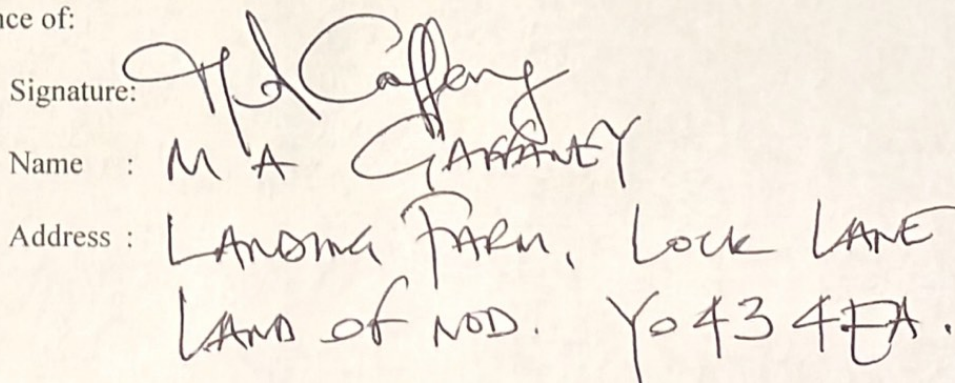 nce of:
Signature: M A Gaffney
Name : M A GAFFANEY
Address : LANDING FARM, LOCK LANE
LAND OF NOD. YO43 4EA.